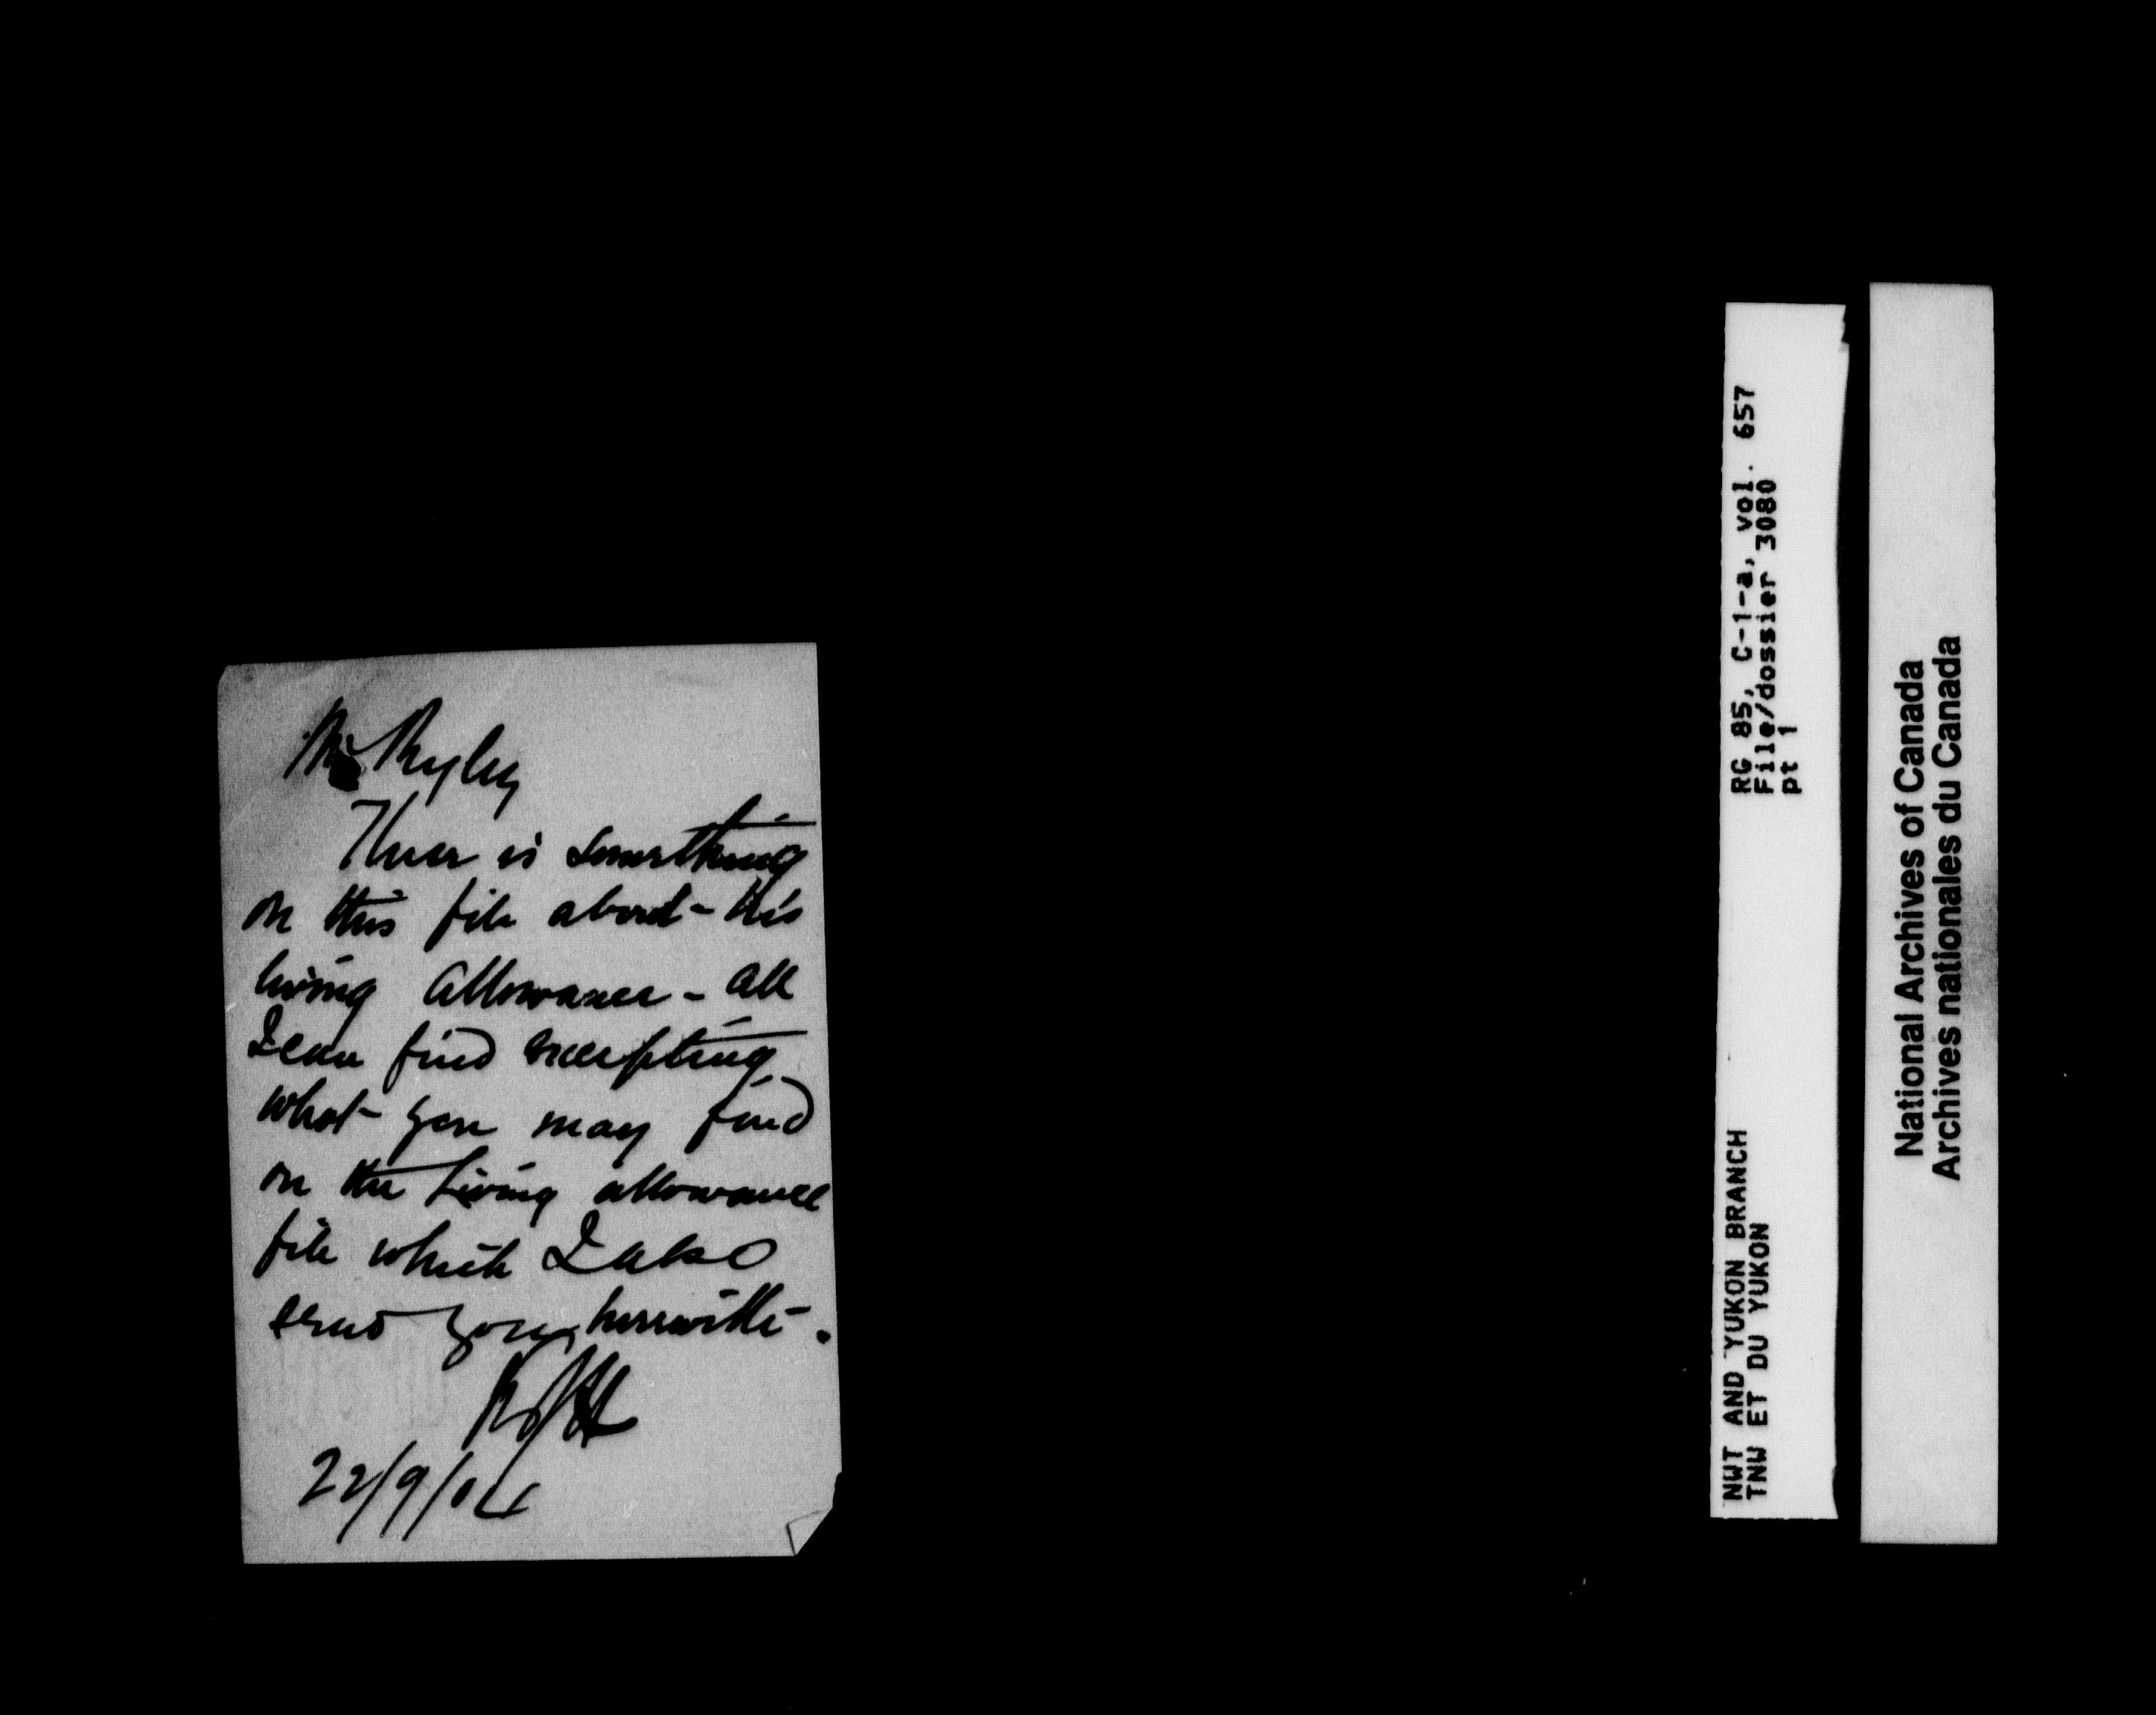 Mr Ryley
There is something
on this file about his
living allowance - all
I can find excepting
what you may find
on the living allowance
file which I also
send you herewith.
22/9/04
RG 85, C-1-a, vol. 657
File/dossier 3080
pt 1
NWT AND YUKON BRANCH
TNW ET DU YUKON
National Archives of Canada
Archives nationales du Canada